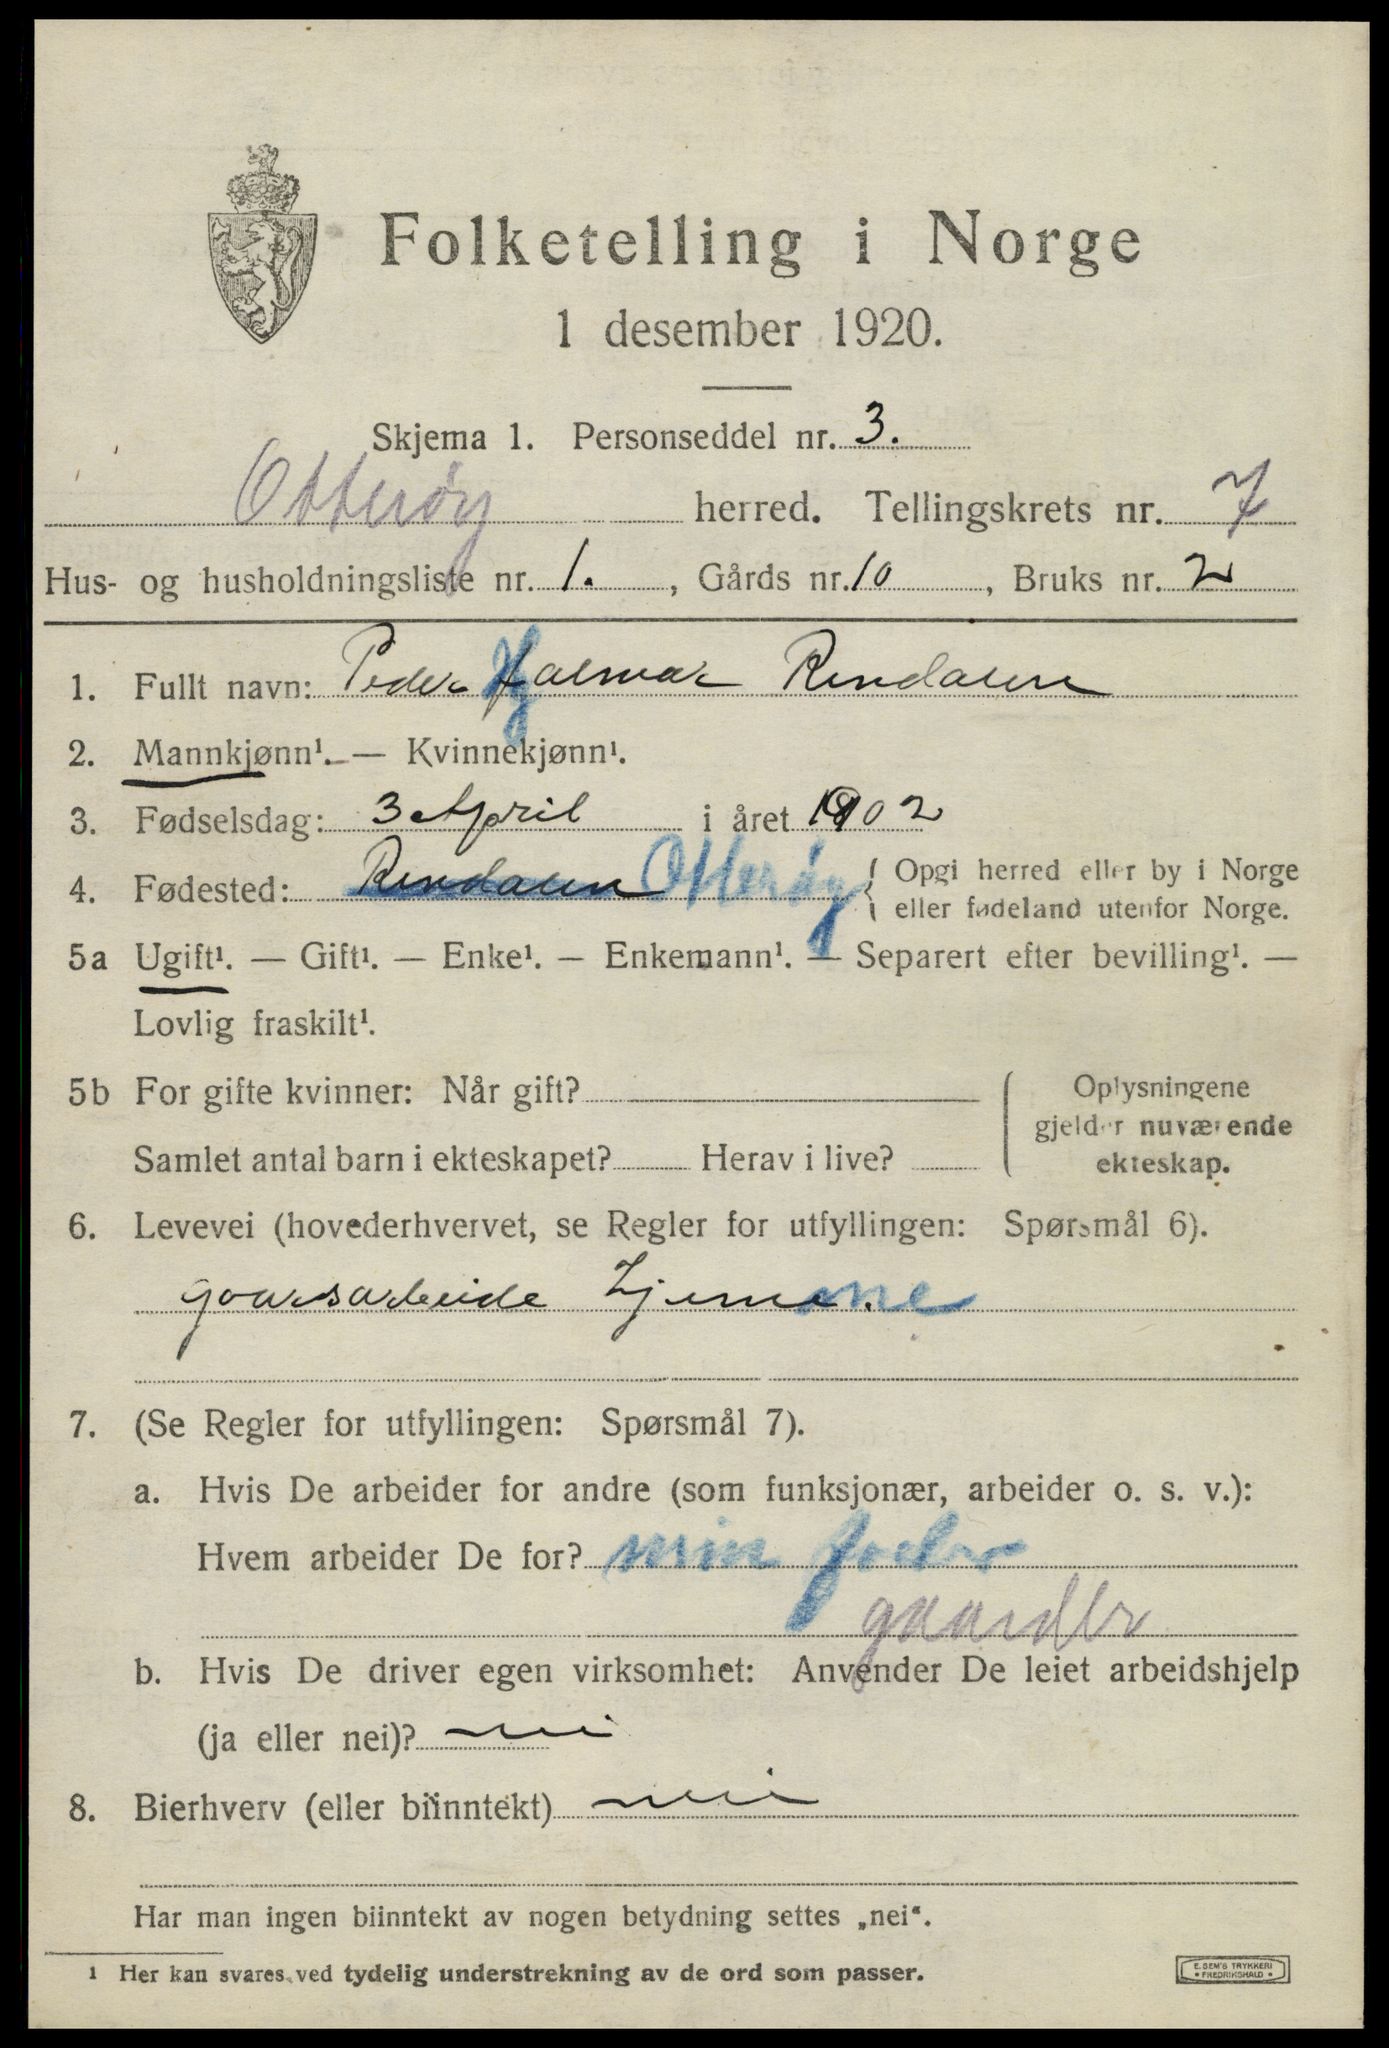 Folketelling i Norge
1 desember 1920.
Skjema 1. Personseddel nr. 3.
Otterøy herred. Tellingskrets nr. 7
Hus- og husholdningsliste nr. 1. , Gårds nr. 10 , Bruks nr. 2
1. Fullt navn: Peder Hjalmar Rendalen
2. Mannkjønn¹. — Kvinnekjønn¹.
3. Fødselsdag: 3 April i året 1902
4. Fødested: Rendalen Otterøy { Opgi herred eller by i Norge
eller fødeland utenfor Norge.
5a Ugift¹. — Gift¹. — Enke¹. — Enkemann¹. — Separert efter bevilling¹. —
Lovlig fraskilt¹.
5b For gifte kvinner: Når gift?
Samlet antal barn i ekteskapet? Herav i live?
Oplysningene
gjelder nuværende
ekteskap.
6. Levevei (hovederhvervet, se Regler for utfyllingen: Spørsmål 6).
gaarsarbeide
7. (Se Regler for utfyllingen: Spørsmål 7).
a. Hvis De arbeider for andre (som funksjonær, arbeider o. s. v.):
Hvem arbeider De for? min fader
gaardbr
b. Hvis De driver egen virksomhet: Anvender De leiet arbeidshjelp
(ja eller nei)? nei
8. Bierhverv (eller biinntekt) nei
Har man ingen biinntekt av nogen betydning settes „nei“.
¹ Her kan svares ved tydelig understrekning av de ord som passer.
E. SEM'S TRYKKERI
• FREDRIKSHALD •